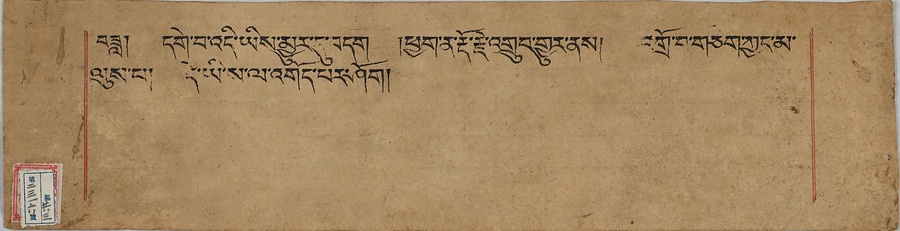 བཟླ། དགེ་བ་འདི་ཡིས་མྱུར་དུ་བདག །ཕྱག་ན་རྡོ་རྗེ་འགྲུབ་གྱུར་ནས། འགྲོ་བ་གཅིག་ཀྱང་མ་
ལུས་པ། དེ་ཡི་ས་ལ་འགོད་པར་ཤོག།